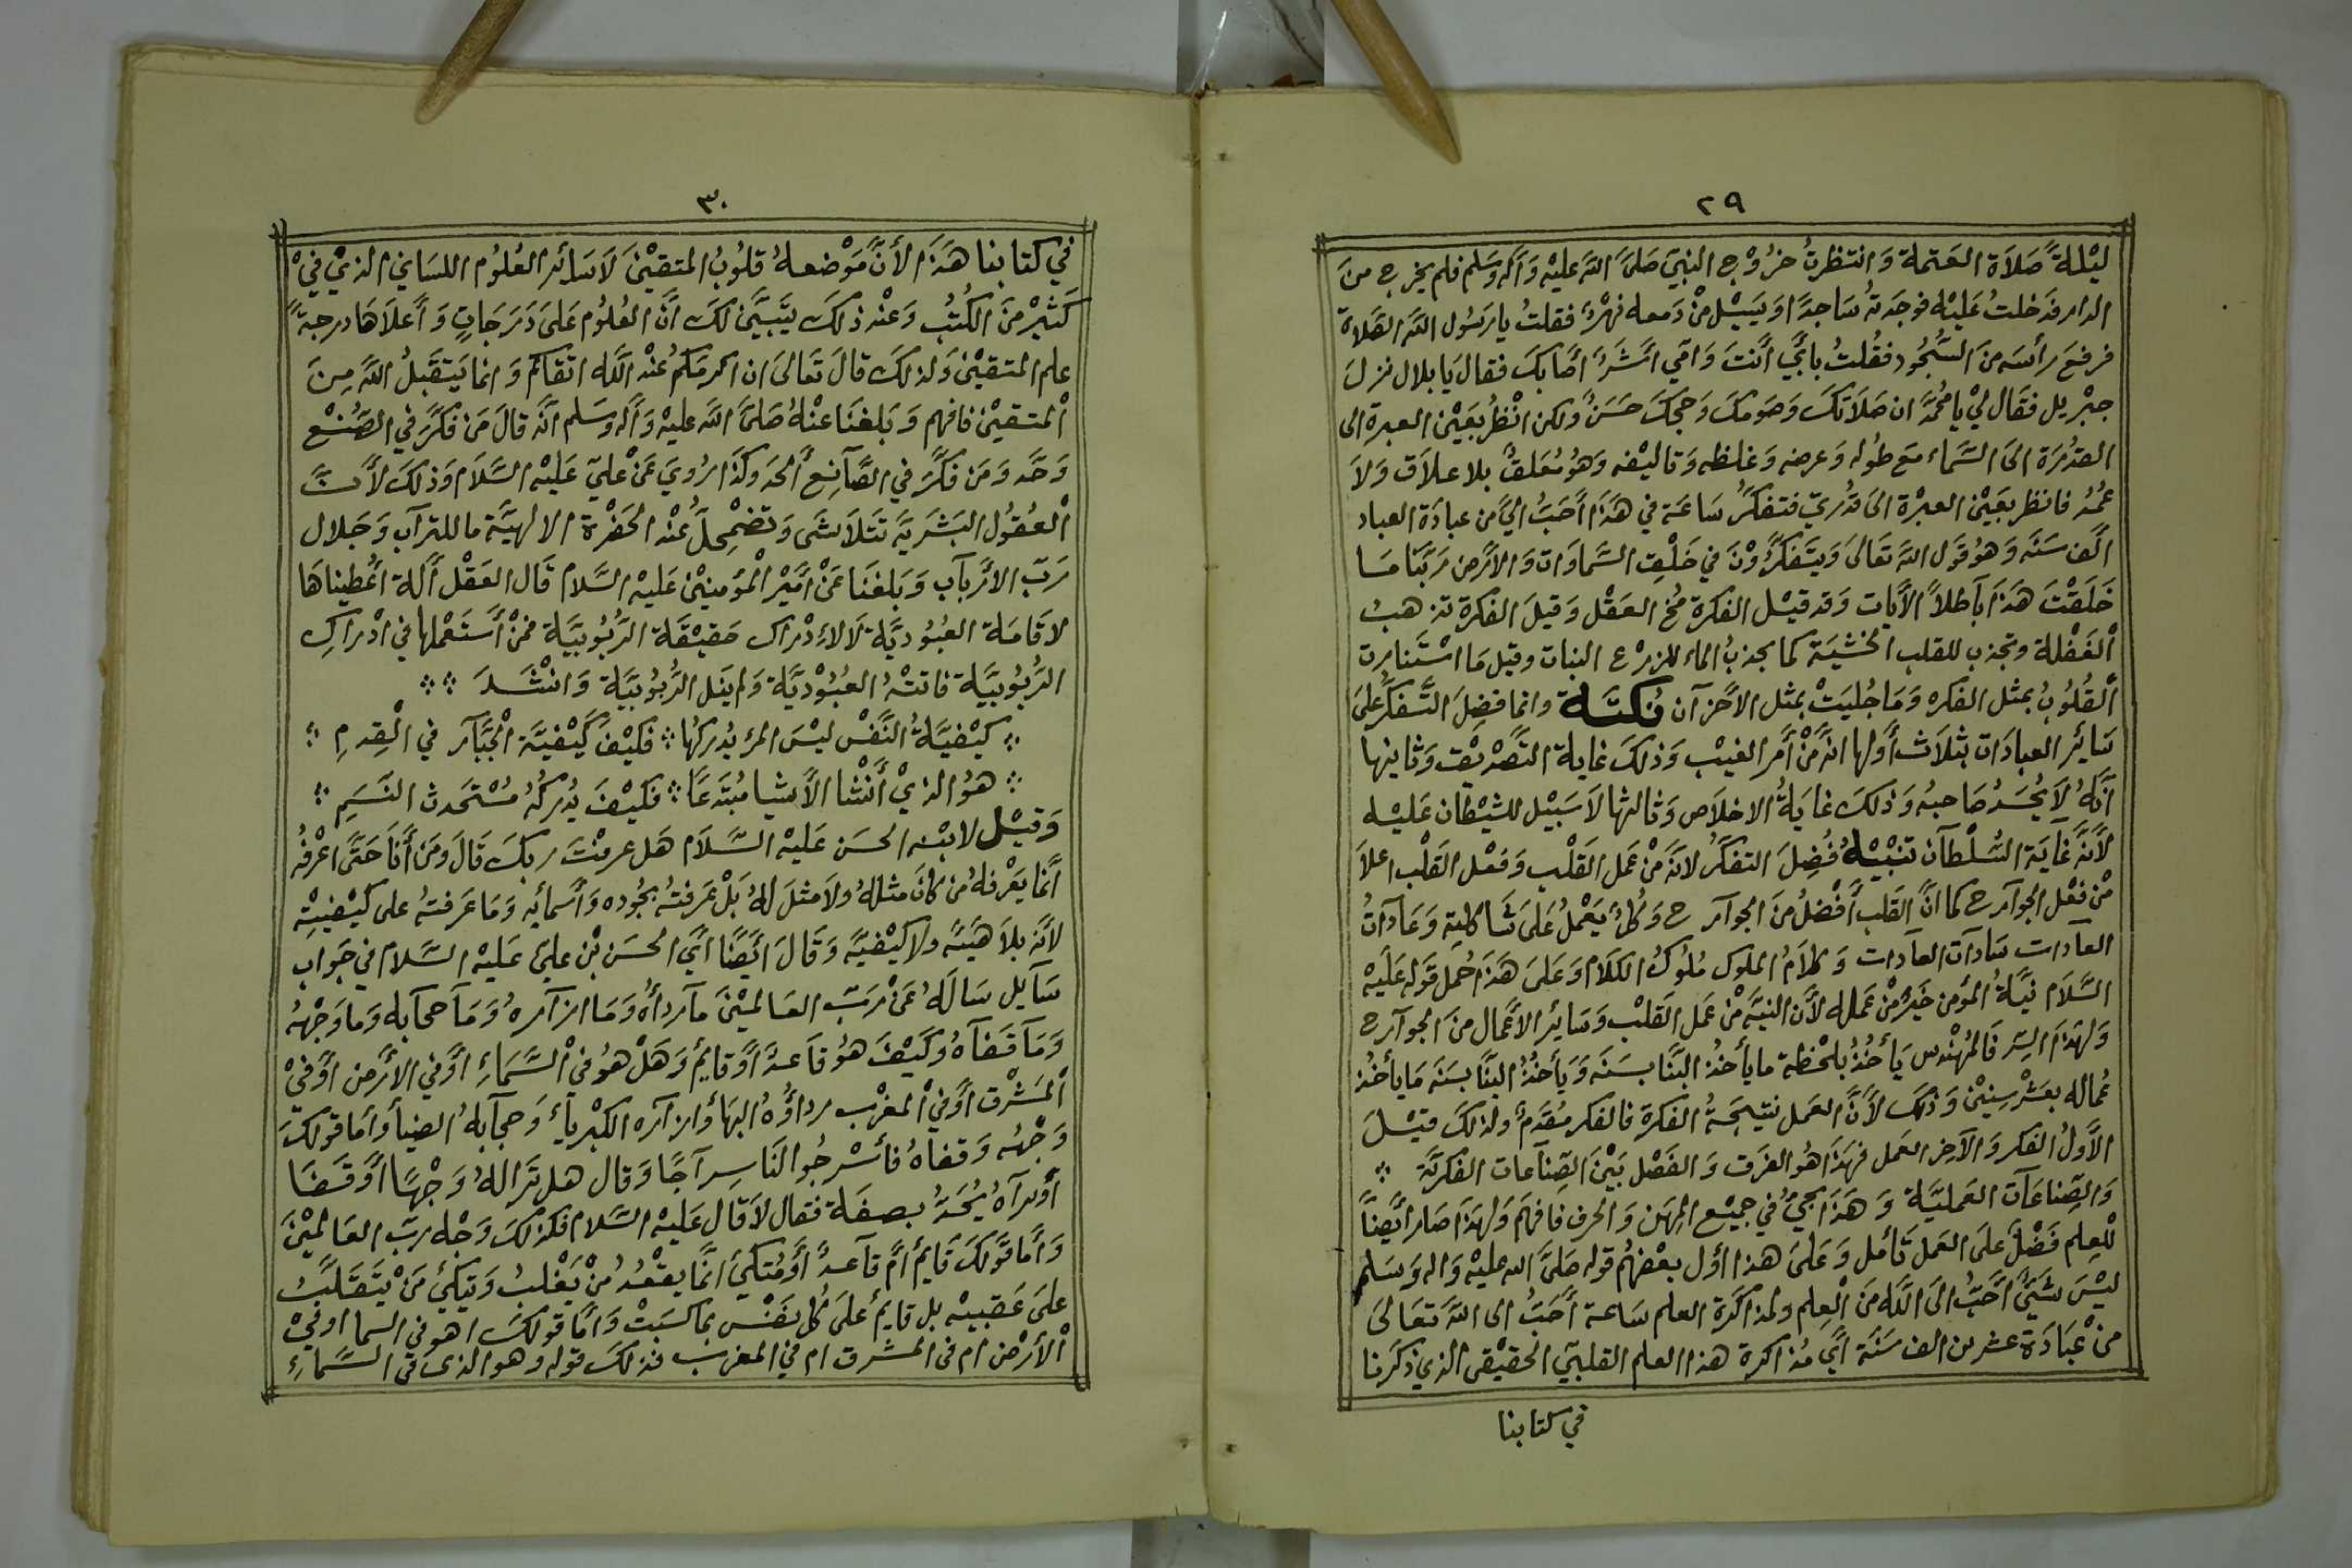 ٢٩
ليْلةً صَلاَة العَتمة وَانتظرتُ خرُوْج النبيّ صَلىَّ اللهَ عليْه وَآله وَسَلم فلم يخرج منَ
الدار فدَخلتُ عَليْه فوجَدتهُ سَاجدًا وَيَسِيْل منْ دَمعه نهْرٌ فقلتُ يارَسُول اللهَ الصَّلاة
فرفعَ رأسَه منَ السُّجُود فقُلتُ بأبيْ أَنتَ وَامّي اشَرٌ أصَابكَ فقال يَابلال نزلَ
جبْريل فقَال ليْ يامُحُمَّدْ ان صَلاَتكَ وَصَومكَ وَحجكَ حَسَنٌ ولكن انْظُر بعَيْن العبرة الى
القدُرَة الىَ السَّماء معَ طُوله وَعرضه وَغلظه وَتاليْفه وَهوُ مُعَلقٌ بلا علاق وَلاَ
عُمُد فانظر بعَيْن العبرْة الىَ قدُريّ فتفكرُ سَاعَة في هَذَا أحَبُّ اليَّ من عبادَة العباد
الْف سَنَه وَهوُ قوَل اللهَ تعَالىَ وَيتَفكرُّوْنَ في خلْق السَّماوَات وَالأرَض رَبّنَا مَا
خَلَقْتَ هَذَا بَآطلاً الآيات وَقد قيْل الفكرة مُخ العَقْل وَقيلَ الفكرة تذهبُ
الْغَفْلة وتجذب للقلب الخشيَة كما يجذبُ الماء للزرْع النبات وقيل مَا اسْتَنارت
الْقُلوُبُ بمثل الفكره وَمَا جُليَتْ بمثل الاحَزآن نُكتَة وانما فضِلَ التَّفكرُّ علىَ
سَائر العبادَات بثلاَث أولها انهَّ منْ أمَر الغيْب وَذلكَ غايةَ التَّصْديْق وَثانيها
انَّهُ لاَ يُحسَدُ صَاحبهُ وَذلكَ غايَةُ الاخلاَص وَثالثها لاَ سَبيْل للشيْطان عَليْه
لأنَّهَ غآيَة السُّلْطآن تنْبيْهٌ فُضِلَ التفكرُّ لانهَ منْ عَمل القَلْب وَفعْل القَلْب اعلاَ
منْ فعْل الجوآرح كما انَّ القَلب أفْضلُ منَ الجوآرح وَكُلٌ يَعْملُ عَلىَ شَاكلته وَعَادَآتُ
العآدات سَادآت العآدات وَكلاَمُ الملوك مُلوُكُ الكلاَم وَعَلىَ هَذَا حُمل قوَله عَليْه
السَّلاَم نيَّةُ المؤمن خَيْرٌ منْ عَمله لأنَّ النيَّة منْ عَمل القَلبْ وَسَائر الأعْمال منَ الجوآرح
وَلهذَا السِّر فَالمُهنْدس يَأخُذُ بلحْظة ما يأخذُ البَنَّا بسَنَة وَيَأخذُ البنَّا بسَنَة مَا يأخذُ
عُماله بعَشْر سِنيْن وَذلكَ لأنَّ العَمل نتيْجَةُ الفكرَة فالفكر مُقدَمٌ ولذلكَ قيْلَ
الأوَّلُ الفكر وَالآخر العَمل فهذَا هوُ الفرَق وَالفَصْل بيْنَ الصِّنآعات الفكريَّة ؞
وَالصِّناعَآت العَمليَّة وَهَذَا يجيُّ في جميْع المهَن وَالحرف فافهَم وَلهذَا صَار أيضًا
للْعِلم فَضْلٌ عَلىَ العَمل تأمل وَعَلىَ هذا أوّل بعْضهُم قوله صَلىَّ الله عليْه وَاله وَسَلم
ليْسَ شَيْئٌ أحَبُّ الىَ اللهَ منَ العِلم ولمذاكرَة العلم سَاعة أَحَبُّ الى اللهَّ تعَالىَ
منْ عبَادَة عشرين الف سَنَة أيْ مُذاكرة هذا العلم القلبيّ الحقيْقي الذي ذكرنا
في كتابنا
٣٠
في كتابنا هَذَا لأنَّ مَوْضعهُ قلوُبُ المتقيْنَ لاَ سَائر العُلوُم اللسَاني الذيْ فيْ
كَثيْر منَ الكُتُب وَعنْد ذلكَ يتَبيَّن لكَ أنَّ العُلوُم عَلىَ دَرَجَاتٍ وَأعلاَهَا درجةً
علم المتقيْن وَلذلكَ قالَ تَعَالىَ ان اكرمَكم عنْد اللَه اتقاكم وَانما يَتقَبلُ اللهَ مِنَ
الْمتقيْن فافهم وَبَلغنَا عنْهُ صَلىَّ اللهَ عليْه وَآله وسَلم انَّهَ قالَ مَن فكرَّ في الصُنْع
وَحَّد وَمَن فكرَّ في الصَّآنِع ألحد وكذَا رُويَ عَنْ عليّ عَليْه السَّلاَم وَذلكَ لأنَّ
الْعقُوُل البَشَريَة تتَلاَشَى وَتضْمِحلَّ عُنْد الحَضْرَة الالهيَّة ما للترآب وَجَلال
رَبّ الأرْبآب وَبَلغنَا عَنْ امَيْر الْمؤمنيْن عَليْه السَّلام قَال العَقْل ألَة اعُطيناهَا
لاقامَة العُبُوديَّة لاَ لاءدْرَاك حَقيْقَة الرُبُوبيَّة فمَنْ أسْتَعْملها في ادْراكِ
الرُّبُوُبيَّة فاتتْهُ العُبُوْديَّة وَلم يَنل الرُّبُوْبيَّة وَانْشَدَ ؞ ؞
؞ كيْفيَّةُ النَّفْس ليْسَ المرَءُ يُدركُها ؞ فكيْفَ كيْفيَّة الْجَبَّآر في الْقِدمِ ؞
؞ هوُ الذيْ أنْشَا الأشيا مُبْتَدعًا ؞ فكيْفَ يُدركُهُ مُسْتَحدث النَسَمِ ؞
وَقيْل لابنْه الحسَن عَليْه السَّلاَم هَل عرفتَ ربكَ قالَ ومَن أنَا حَتَّى اعْرفُه
انمَّا يعَرْفهُ من كانَ مثلهُ ولاَ مثلَ لهُ بَلْ عَرفتهُ بجُوده وَأسمائه وَمَا عَرفتهُ على كيْفيتْه
لأنَّه بلاَ هَيئة ولا كيْفيَّه وَقَالَ ايَضًا أيّ الحسَن بْن عليّ عَليْه السَّلام في جَواب
سَآيل سَألَهُ عَنْ رَبّ العَالميْنَ مآ ردأُه وَمَا ازآره وُمَآ حجآبه وَما وَجْههُ
وَمَآ قَفآهُ وَكيْفَ هوُ قآعدٌ أوْ قايمٌ وَهَلْ هوُ فى الْسَّمَاءِ أوْ في الأرَض اوْ فيْ
الْمَشْرق اوْ فيْ المغرْب رداؤُه البهَأ وازآره الكبْريآءُ وَحجآبهُ الضيأ وَأما قولكَ
وَجْهه وَقفاهُ فأسْرجُوا لنَا سِرآجًا وَقال هل تَرا لهُ وَجْهًا أوْ قَفَا
أوْ تراهُ يُحَدُّ بصفَة فقال لاَ قال عَليْه السَّلام فكذلكَ وَجْه ربّ العَالميْنَ
وَأمَا قوَلكَ قَايمٌ أمْ قآعدٌ أوْ مُتكئ انمَّا يقعُدُ منْ يغْلبُ وَيتكئ مَنْ يتَقَلبُ
علىَ عَقبيْه بل قايمٌ علىَ كُل نفَسْ بماكسَبَتْ وَامَّا قولكَ اهو في السما اوفيْ
الْأرْض ام فى المشرق ام في المغرب فذلكَ قوله وهو الذى فى السَّماءِ